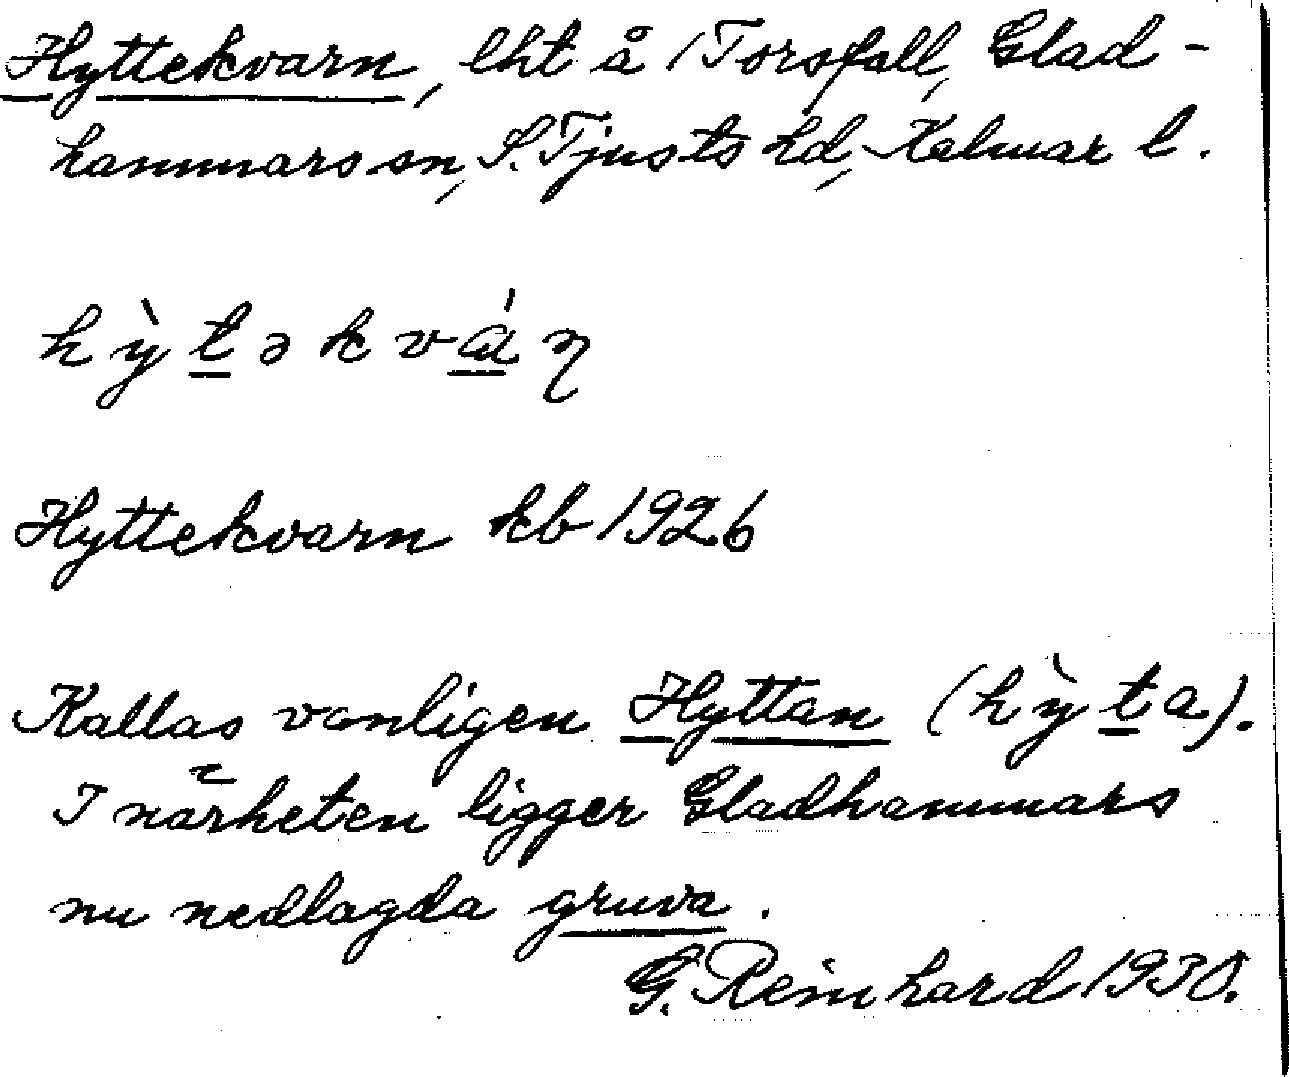 Hyttekvarn, lht å 1 Torsfall, Glad-
hammars sn, S. Tjusts hd, Kalmar l.
hỳtəkván
Hyttekvarn kb 1926
Kallas vanligen Hyttan (hỳta).
I närheten ligger Gladhammars
nu nedlagda gruva.
G. Reinhard 1930.